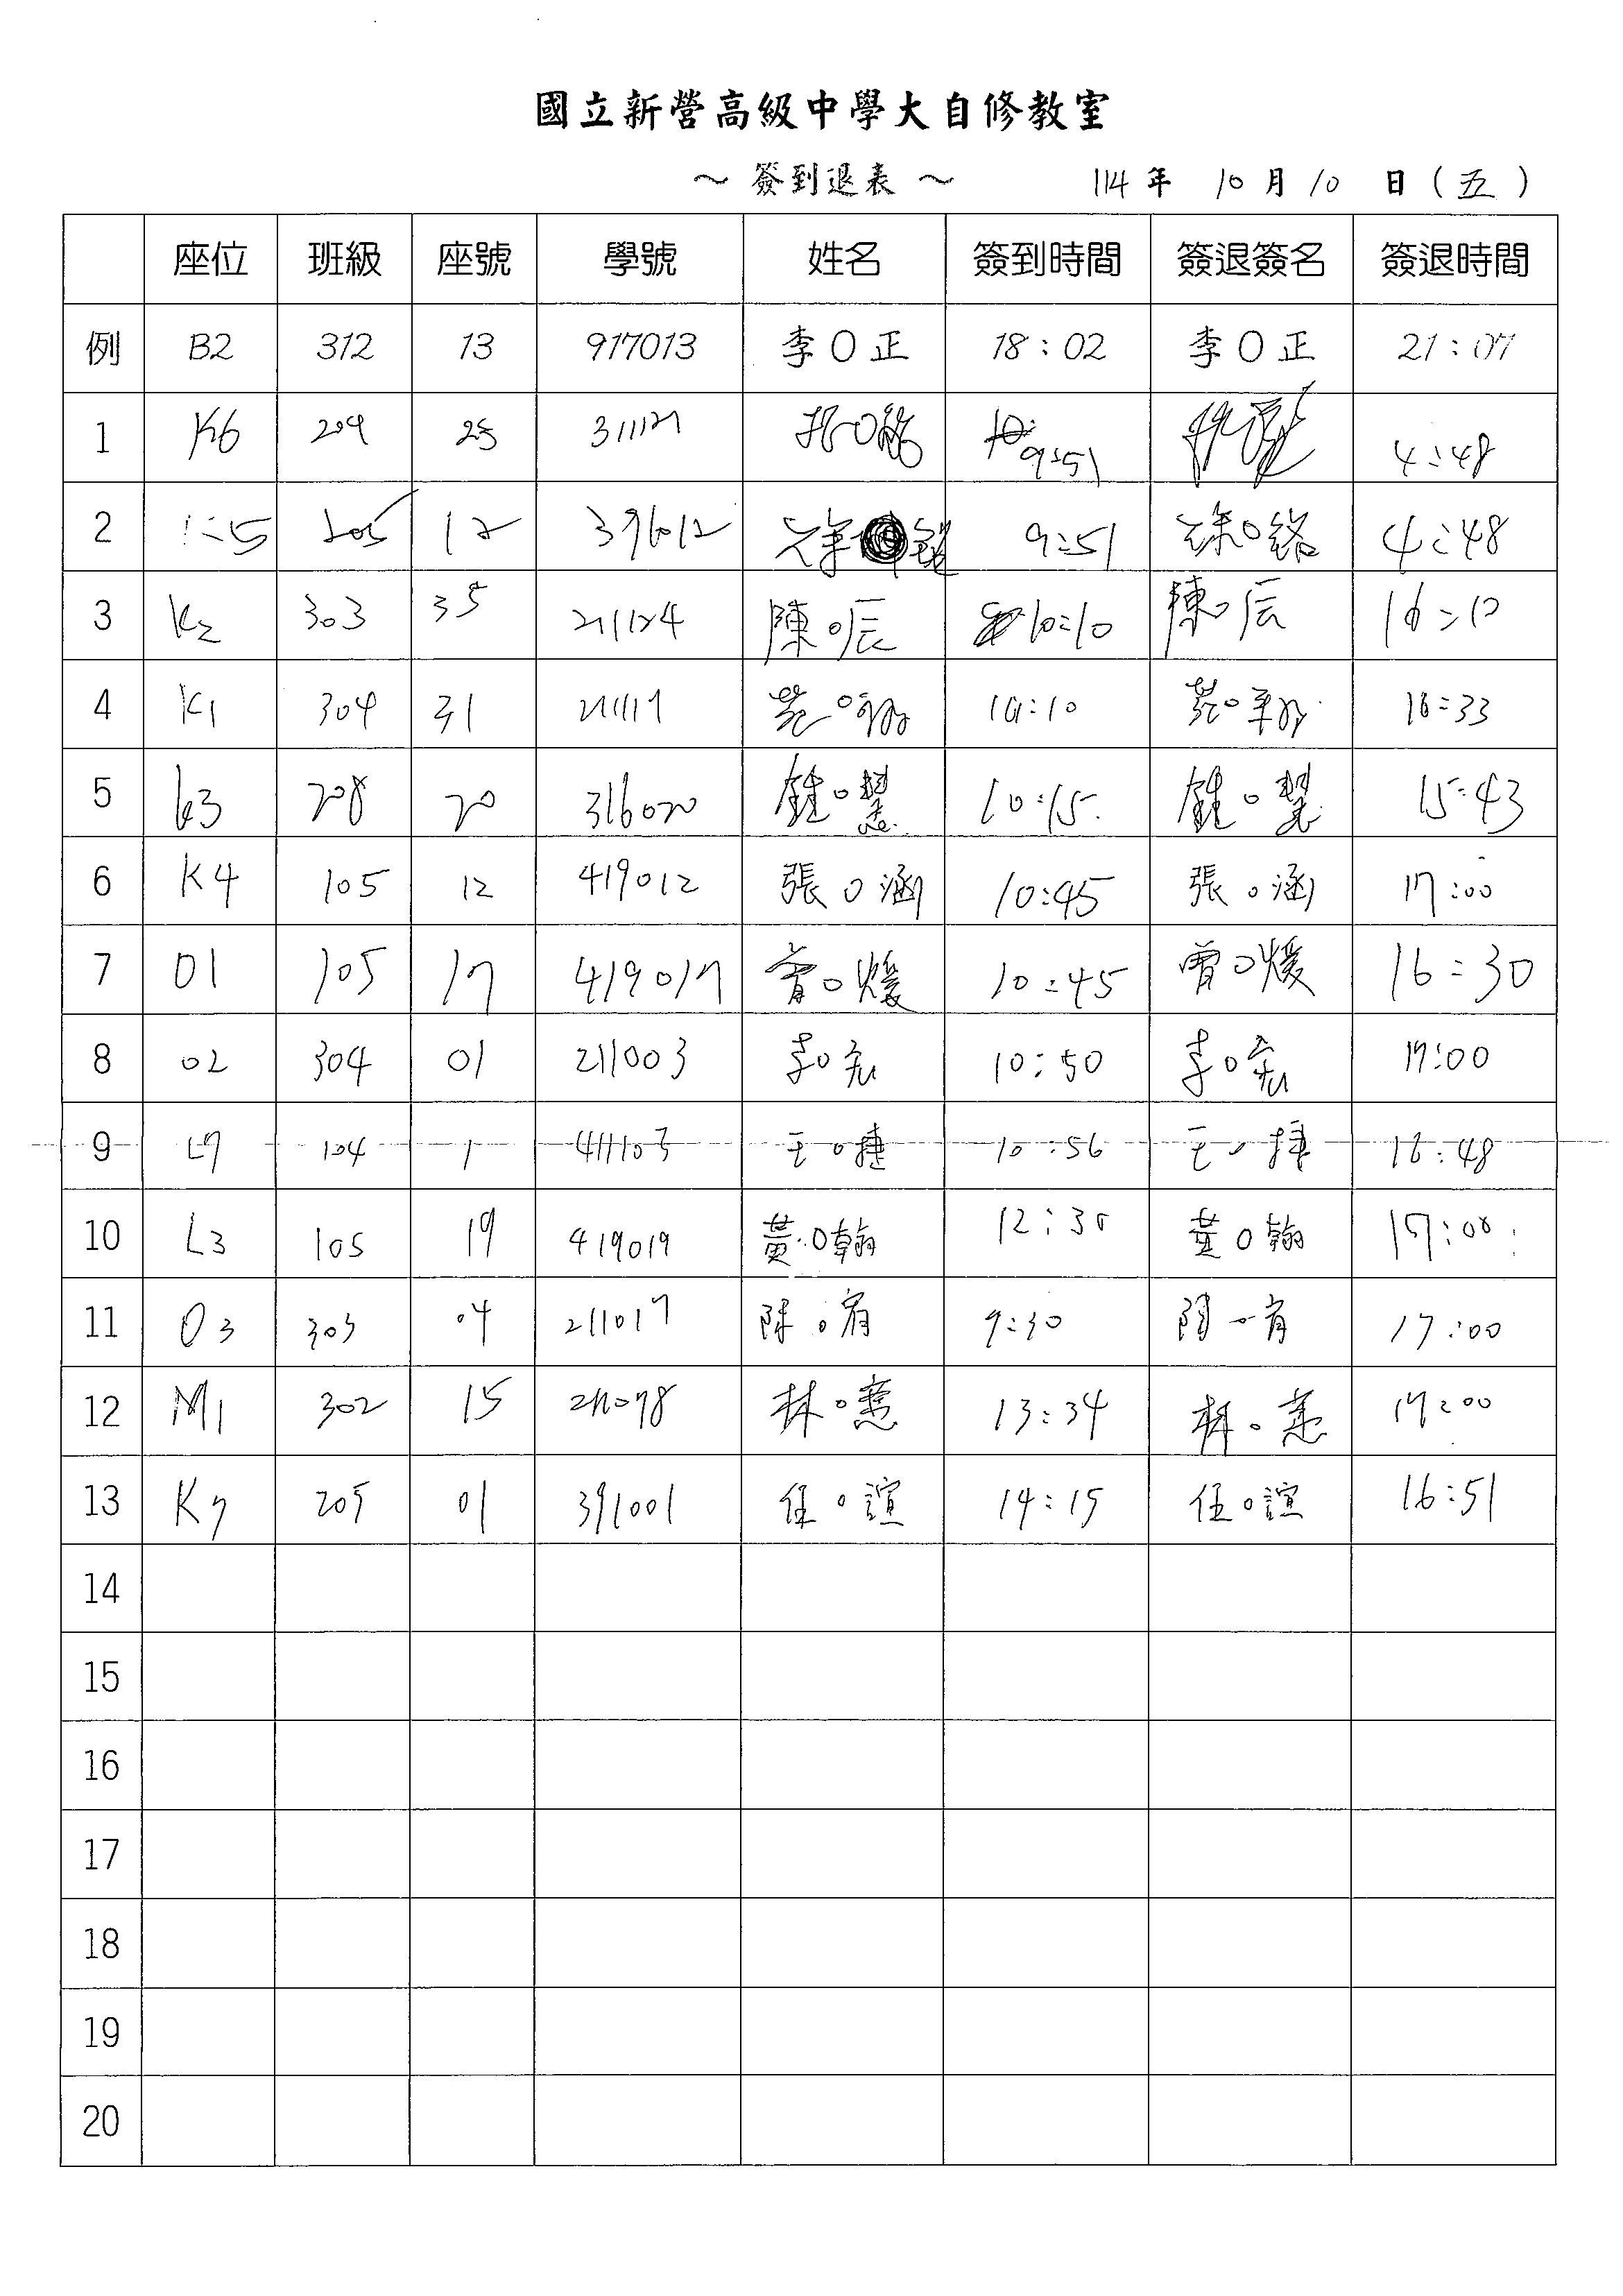 國立新營高級中學大自修教室
～ 簽到退表 ～ 114 年 10 月 10 日 ( 五 )
座位 班級 座號 學號 姓名 簽到時間 簽退簽名 簽退時間
例 B2 312 13 917013 李O正 18:02 李O正 21:07
1 K6 209 25 9:51 4:48
2 205 12 391012 9:51 4:48
3 K2 303 35 211124 陳O辰 10:10 陳O辰 16:10
4 K1 304 31 10:10 16:33
5 k3 208 20 316020 鍾O慧 10:15 鍾O慧 15:43
6 K4 105 12 419012 張O涵 10:45 張O涵 17:00
7 O1 105 17 419017 曾O媛 10:45 曾O媛 16:30
8 02 304 01 211003 李O宏 10:50 李O宏 17:00
9 L7 104 1 411103 王O捷 10:56 王O捷 16:48
10 L3 105 19 419019 黃O翰 12:30 黃O翰 17:00
11 O3 303 04 211017 陳O宥 9:30 17:00
12 M1 302 15 211078 林O蕙 13:34 林O蕙 17:00
13 K7 205 01 391001 任O誼 14:15 任O誼 16:51
14
15
16
17
18
19
20